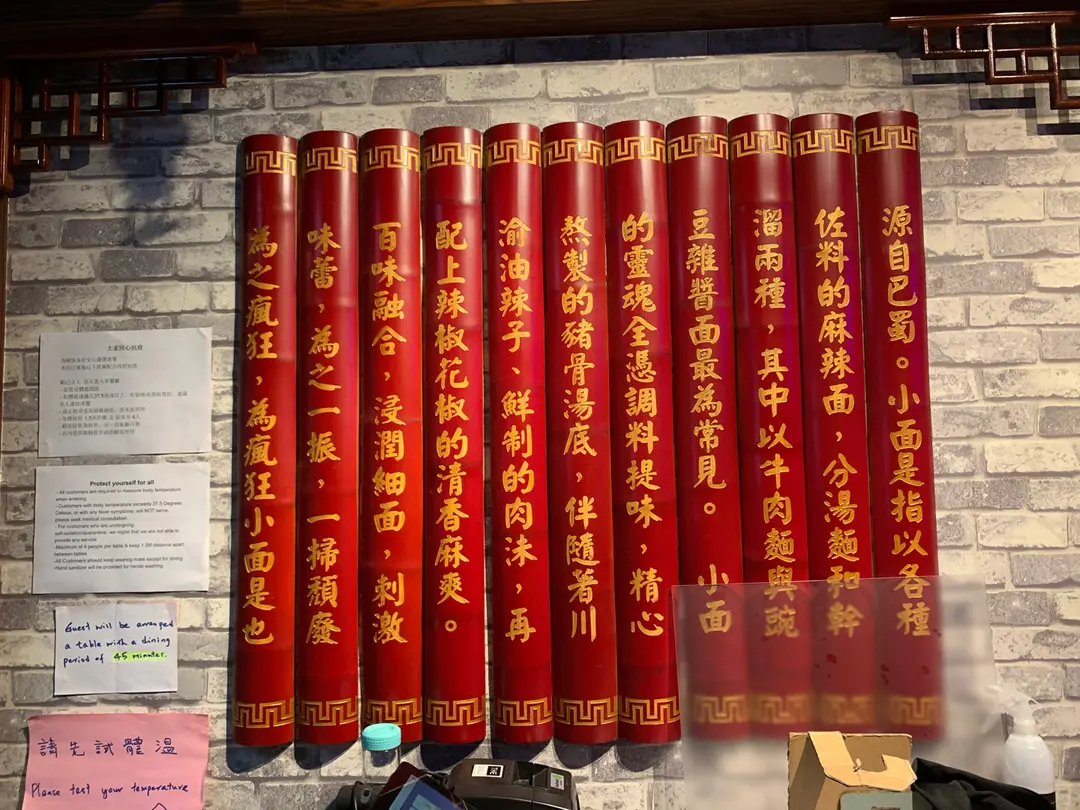 源自巴蜀。小面是指以各種
佐料的麻辣面，分湯麵和幹
溜兩種，其中以牛肉麵與豌
豆雜醬面最為常見。 小面
的靈魂全憑調料提味，精心
熬製的豬骨湯底，伴隨著川
渝油辣子、鮮制的肉沫，再
配上辣椒花椒的清香麻爽。
百味融合，浸潤細面，刺激
味蕾，為之一振，一掃頹廢
為之瘋狂，為瘋狂小面是也
大家同心抗疫
Protect yourself for all
- All customers are required to measure body temperature
when entering
- Customers with body temperature exceeds 37.5 Degrees
Celsius, or with any fever symptoms, will NOT serve,
please seek medical consultation
- For customers who are undergoing
self-isolation/quarantine, we regret that we are not able to
provide any service
- Maximum of 4 people per table & keep 1.5M distance apart
between tables
- All Customers should keep wearing mask except for dining
- Hand sanitizer will be provided for hands washing
Guest will be arranged
a table with a dining
period of 45 minutes.
請先試體溫
Please test your temperature